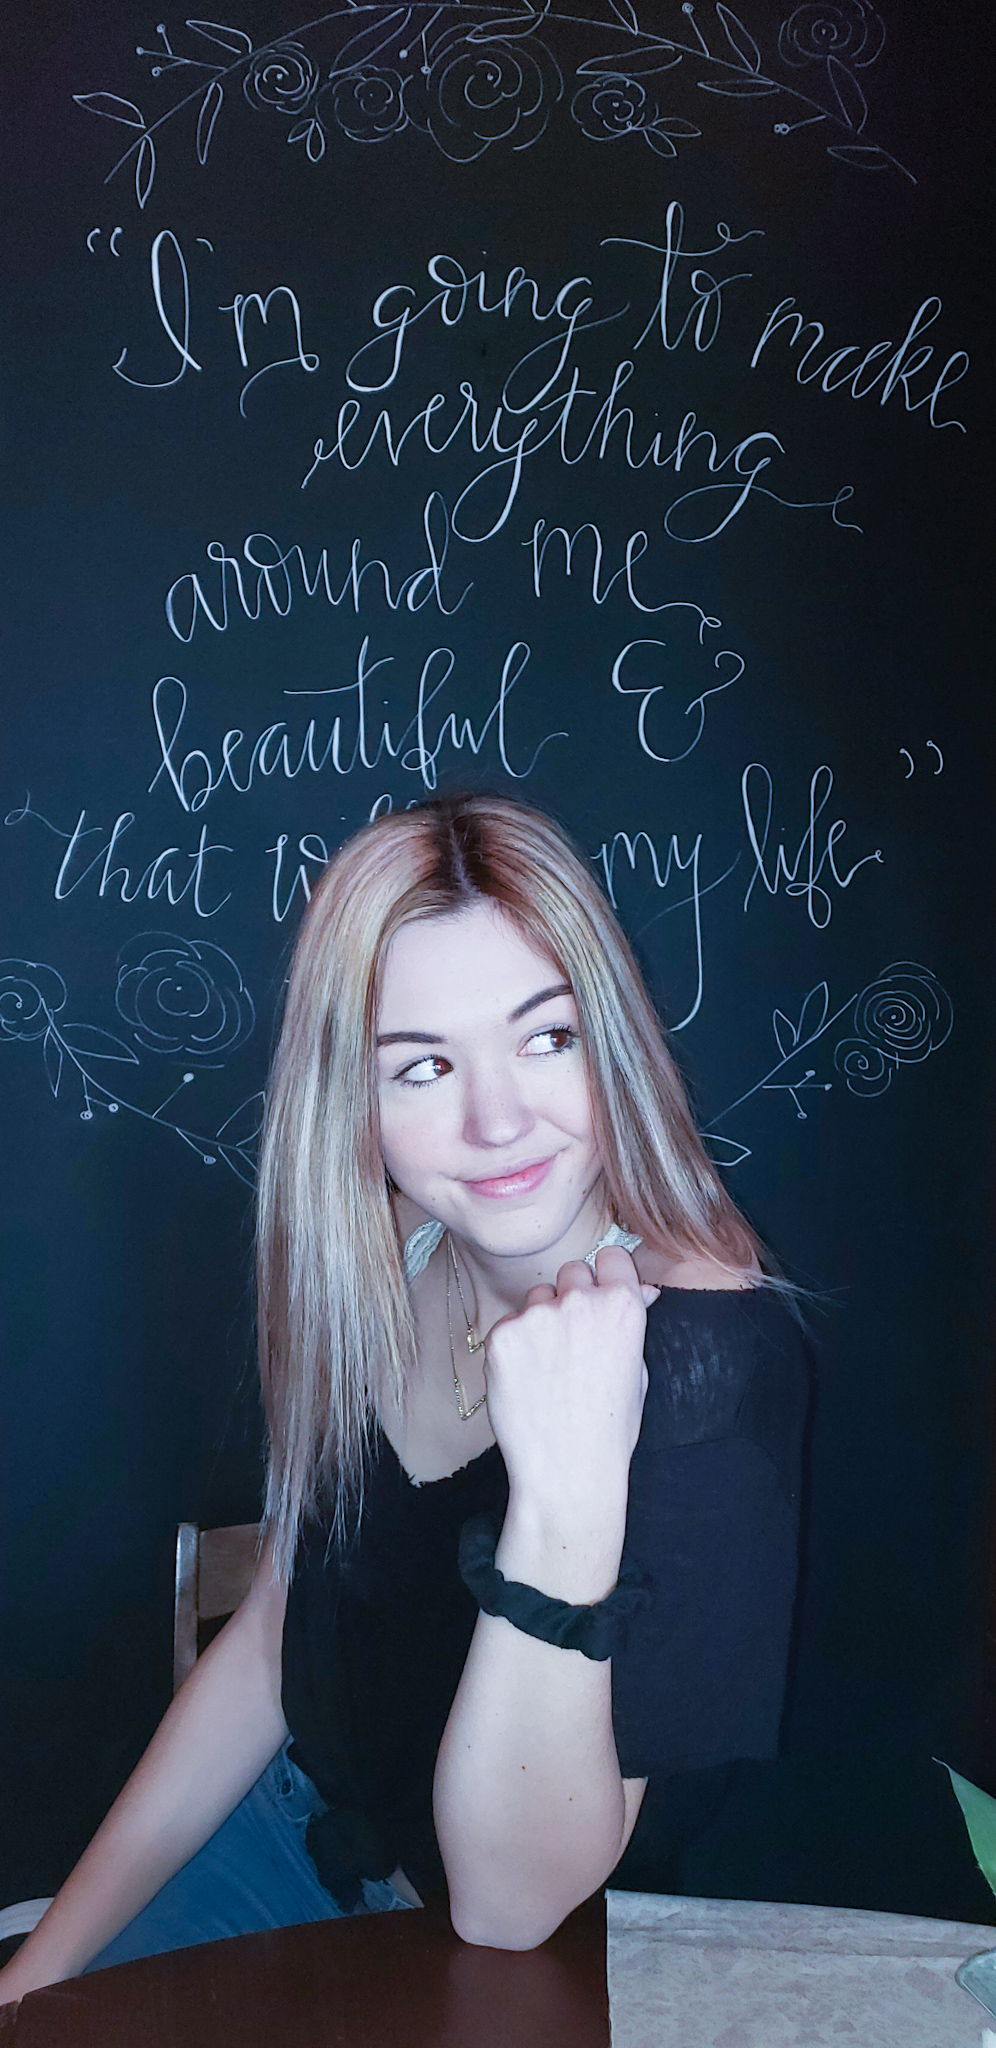 "I'm going to make
everything
around me
beautiful &
that my life"